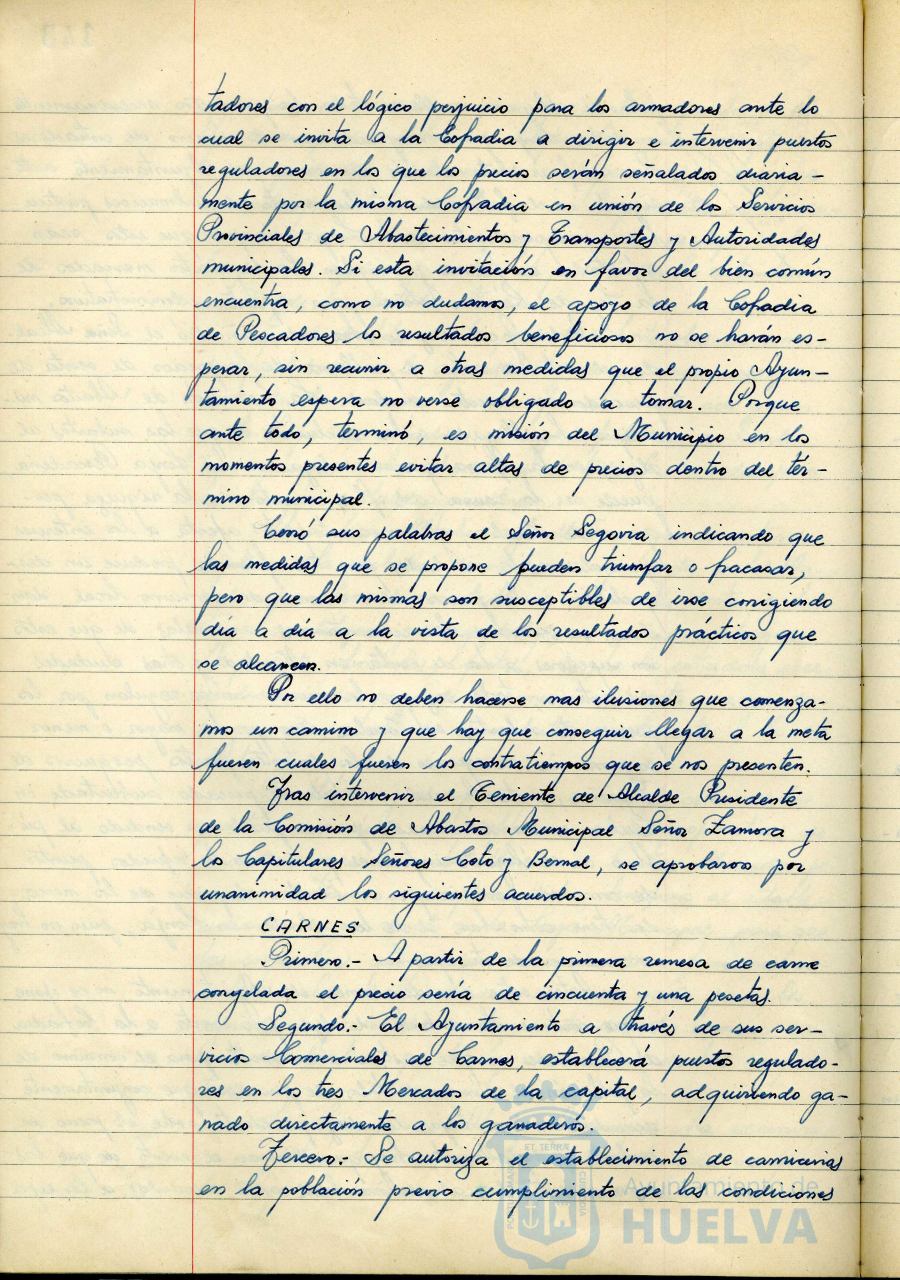 tadores con el lógico perjuicio para los armadores ante lo
cual se invita a la Cofradia a dirigir e intervenir puestos
reguladores en los que los precios serán señalados diaria-
mente por la misma Cofradia en unión de los Servicios
Provinciales de Abastecimientos y Transportes y Autoridades
municipales. Si esta invitación en favor del bien común
encuentra, como no dudamos, el apoyo de la Cofradia
de Pescadores los resultados beneficiosos no se harán es-
perar, sin recurrir a otras medidas que el propio Ayun-
tamiento espera no verse obligado a tomar. Porque
ante todo, terminó, es misión del Municipio en los
momentos presentes evitar altas de precios dentro del tér-
mino municipal.
Cerró sus palabras el Señor Segovia indicando que
las medidas que se propone pueden triunfar o fracasar,
pero que las mismas son susceptibles de irse corrigiendo
día a día a la vista de los resultados prácticos que
se alcancen.
Por ello no deben hacerse mas ilusiones que comenza-
mos un camino y que hay que conseguir llegar a la meta
fueren cuales fueren los contratiempos que se nos presenten.
Tras intervenir el Teniente de Alcalde Presidente
de la Comisión de Abastos Municipal Señor Zamora y
los Capitulares Señores Coto y Bernal, se aprobaron por
unanimidad los siguientes acuerdos.
CARNES
Primero.- A partir de la primera remesa de carne
congelada el precio sería de cincuenta y una pesetas.
Segundo.- El Ayuntamiento a través de sus ser-
vicios Comerciales de Carnes, establecerá puestos regulado-
res en los tres Mercados de la capital, adquiriendo ga-
nado directamente a los ganaderos.
Tercero.- Se autoriza el establecimiento de carnicerias
en la población previo cumplimiento de las condiciones
Ayuntamiento de
HUELVA